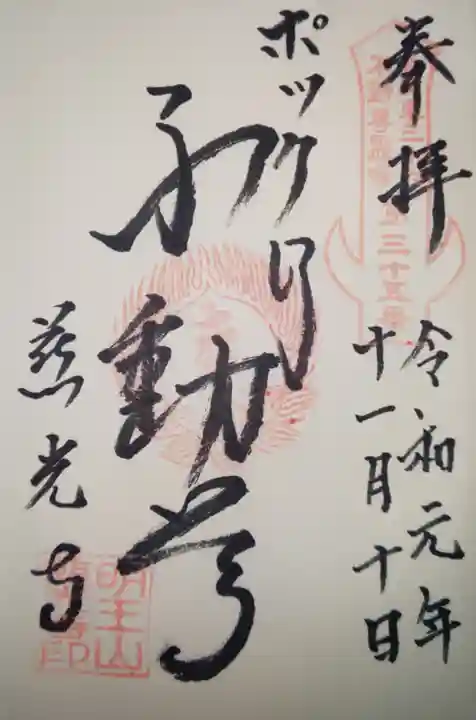 奉拝
三十五番
令和元年
十一月十日
ポックリ
不動尊
慈光寺
明王山